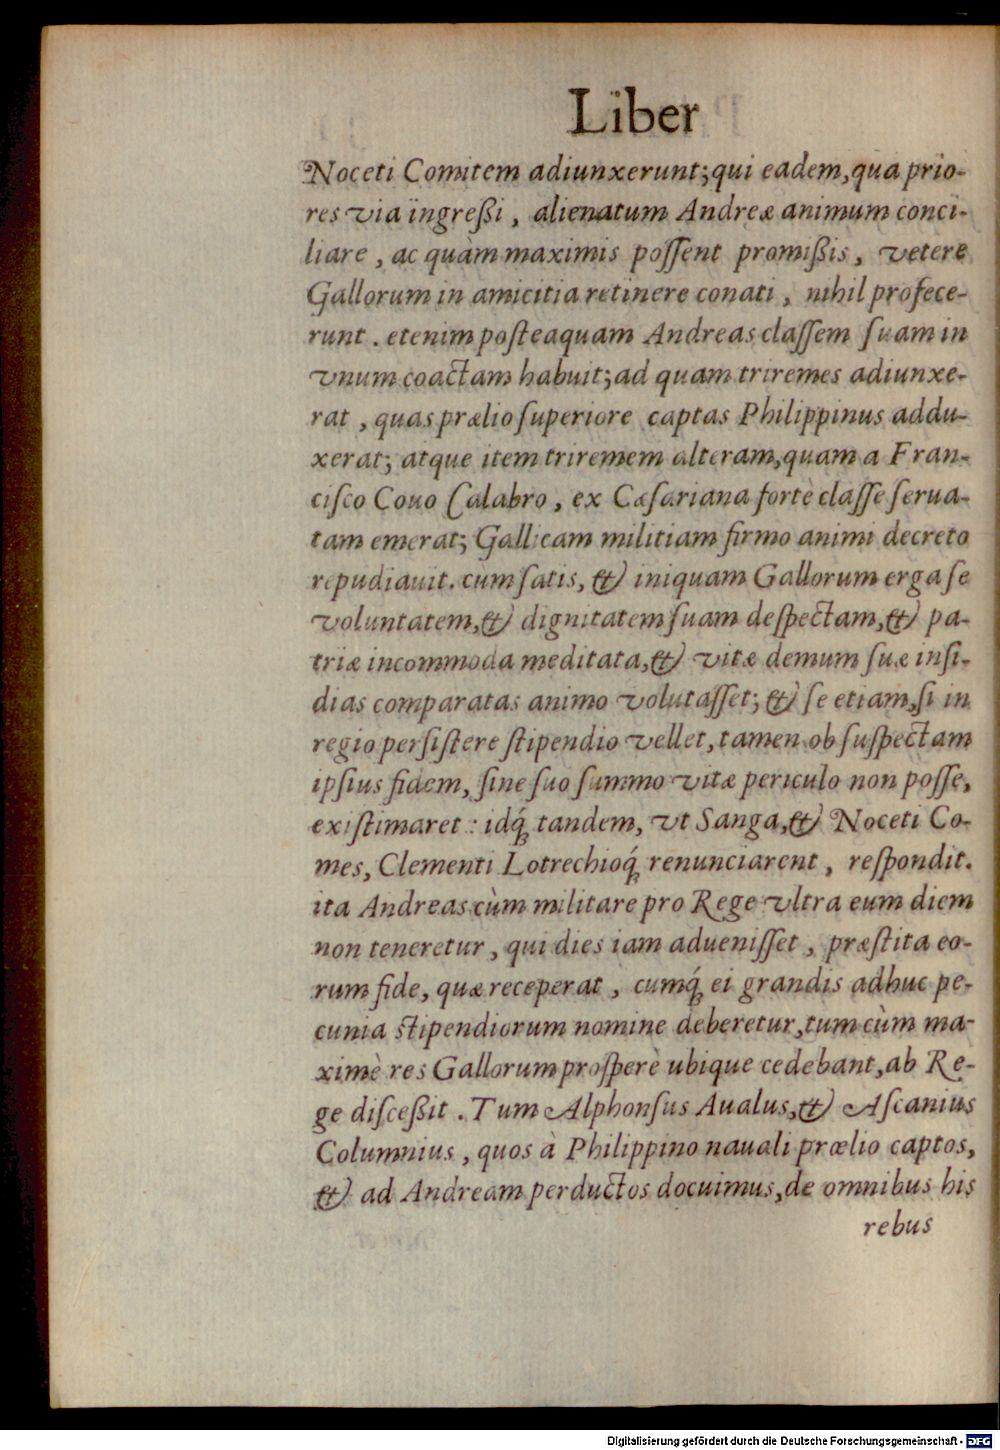 Liber
Noceti Comitem adiunxerunt; qui eadem, qua prio-
res via ingreßi, alienatum Andreæ animum conci-
liare, ac quàm maximis poſſent promißis, vetere
Gallorum in amicitia retinere conati, nihil profece-
runt. etenim poſteaquam Andreas claſſem ſuam in
vnum coactam habuit; ad quam triremes adiunxe-
rat, quas prælio ſuperiore captas Philippinus addu-
xerat; atque item triremem alteram, quam a Fran-
ciſco Couo Calabro, ex Cæſariana fortè claſſe ſerua-
tam emerat; Gallicam militiam firmo animi decreto
repudiauit. cum ſatis, & iniquam Gallorum erga ſe
voluntatem, & dignitatem ſuam deſpectam, & pa-
triæ incommoda meditata, & vitæ demum ſuæ inſi-
dias comparatas animo volutaſſet; & ſe etiam, ſi in
regio perſiſtere ſtipendio vellet, tamen ob ſuſpectam
ipſius fidem, ſine ſuo ſummo vitæ periculo non poſſe,
exiſtimaret: idq́; tandem, vt Sanga, & Noceti Co-
mes, Clementi Lotrechioq́; renunciarent, reſpondit.
ita Andreas cùm militare pro Rege vltra eum diem
non teneretur, qui dies iam adueniſſet, præſtita eo-
rum fide, quæ receperat, cumq́; ei grandis adhuc pe-
cunia ſtipendiorum nomine deberetur, tum cùm ma-
ximè res Gallorum proſperè ubique cedebant, ab Re-
ge diſceßit. Tum Alphonſus Aualus, & Aſcanius
Columnius, quos à Philippino nauali prælio captos,
& ad Andream perductos docuimus, de omnibus his
rebus
Digitalisierung gefördert durch die Deutsche Forschungsgemeinschaft - DFG